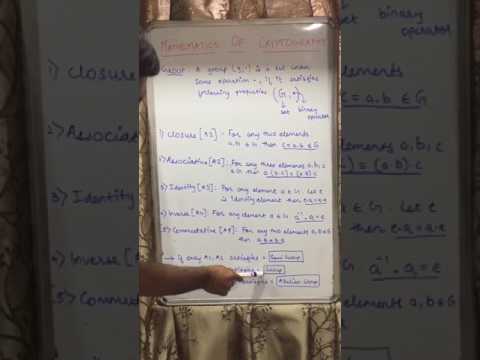 MATHEMATICS OF CRYPTOGRAPHY
GROUP: A group (G, ·) is a set under
some operation · , if it satisfies
following properties (G, ·)
set binary operator
1) CLOSURE [A1]:- For any two elements
a, b ∈ G then c = a.b ∈ G
2) Associative [A2]: For any three elements a, b, c
∈ G then a.(b.c) = (a.b).c
3) Identity [A3]: For any element a ∈ G. Let e
is Identity element then e.a = a.e
4) Inverse [A4]: For any element a ∈ G. a⁻¹.a = e
5) Commutative [A5]: For any two elements a, b ∈ G
then a.b = b.a
→ If only A1, A2 satisfies = Semi Group
= Group
= Abelian Group
binary
operator
set
1) CLOSURE
elements
c = a.b ∈ G
2) Associative
a, b, c
= (a.b).c
3) Identity
Let e
e.a = a.e
4) Inverse
a⁻¹.a = e
5) Commut
a, b ∈ G